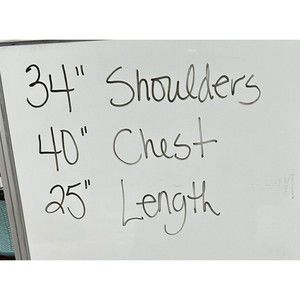 34" Shoulders
40" Chest
25" Length